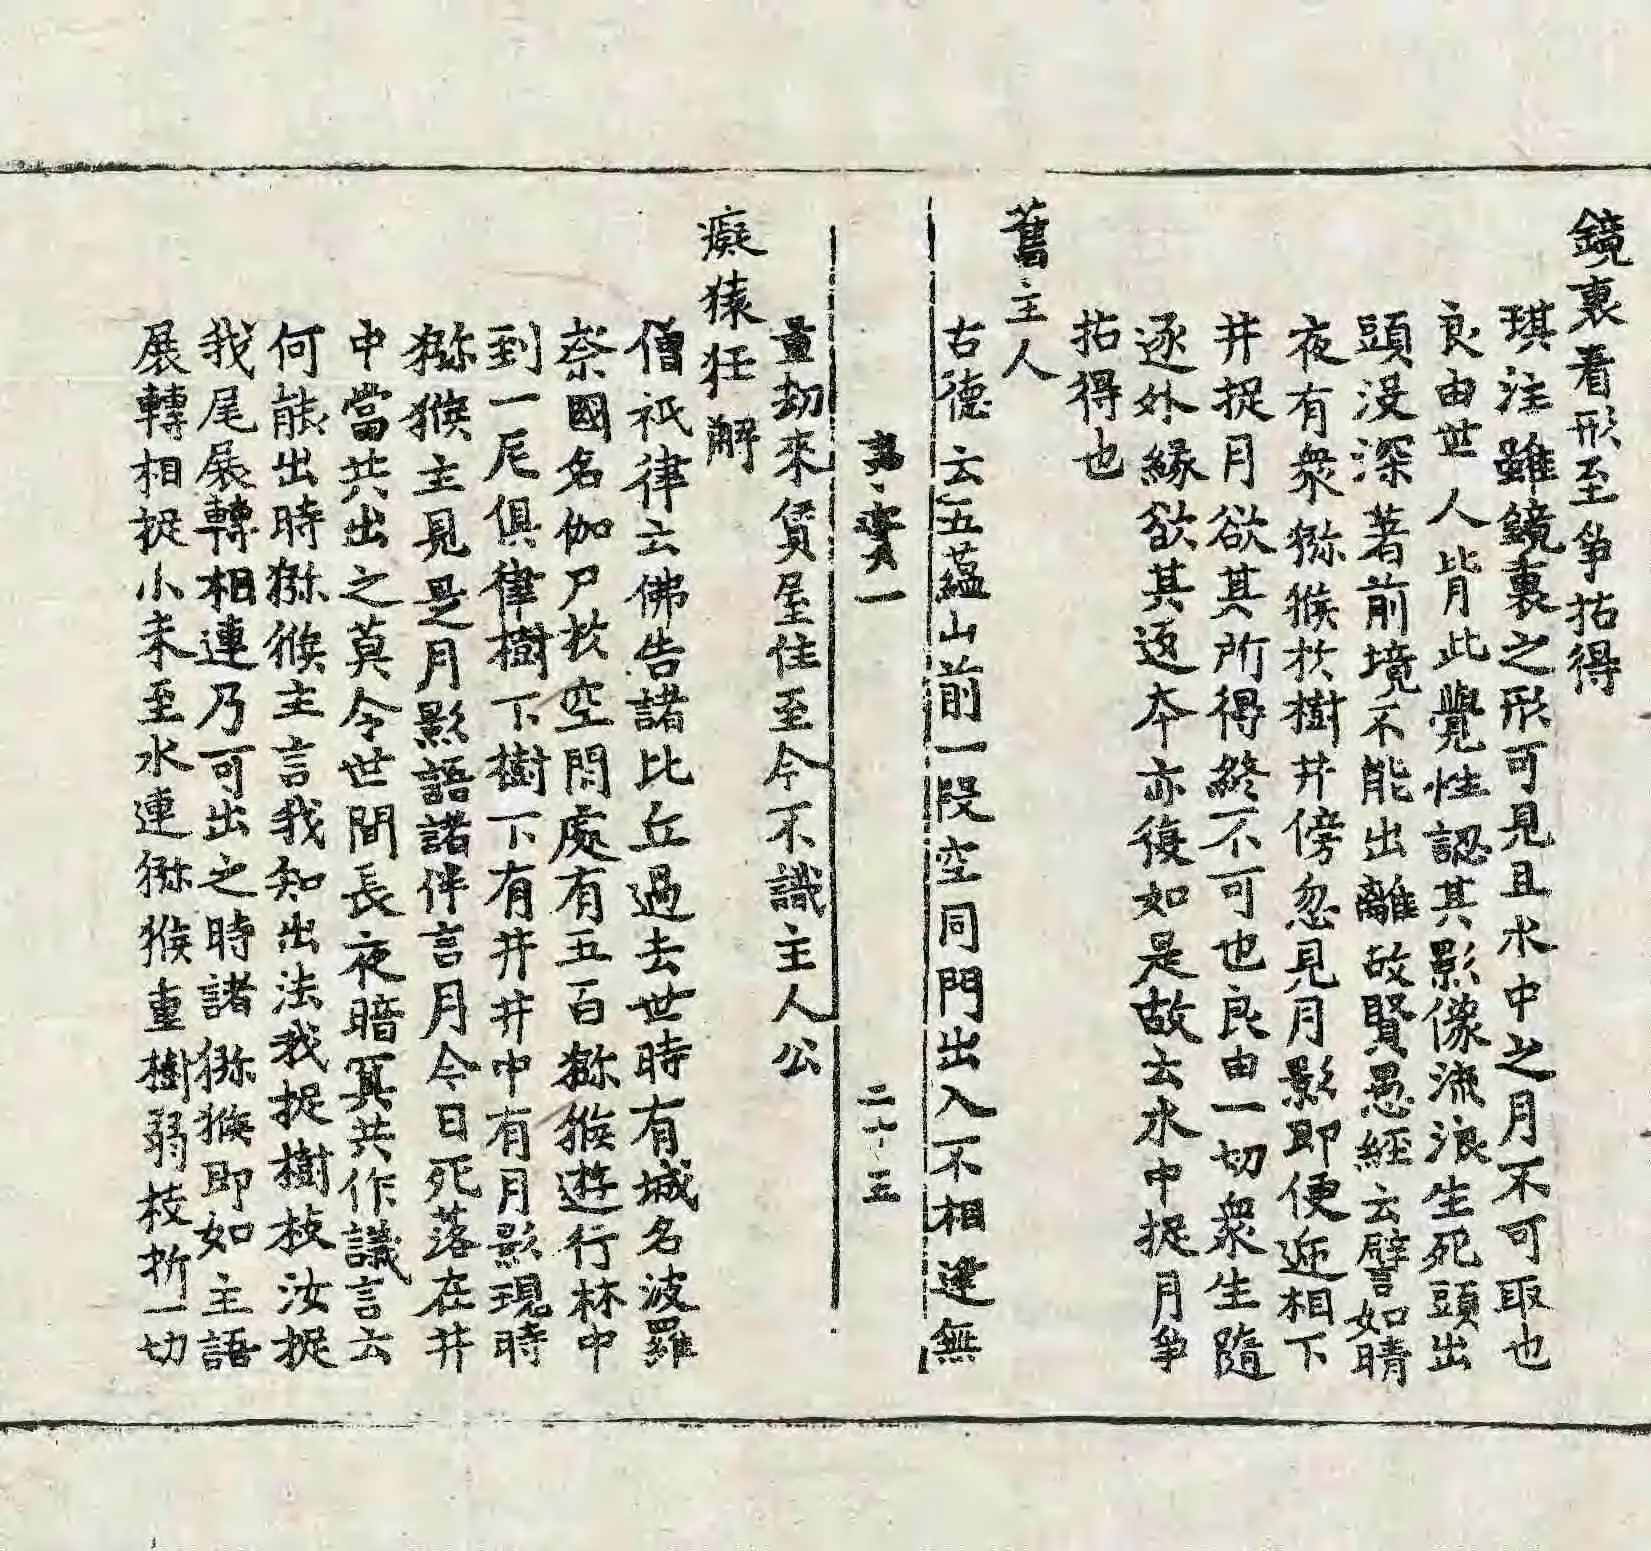 鏡裏看形至爭拈得
琪注雖鏡裏之形可見且水中之月不可取也
良由世人背此覺性認其影像流浪生死頭出
頭没深著前境不能出離故賢愚經云譬如晴
夜有衆獼猴扵樹井傍忽見月影即便近相下
井捉月欲其所得終不可也良由一切衆生隨
逐外緣欲其返本亦復如是故云水中捉月爭
拈得也
舊主人
古德云五蘊山前一段空同門出入不相逢無
事實一
二十三
量劫來賃屋住至今不識主人公
癡猿狂解
僧祇律云佛告諸比丘過去世時有城名波羅
柰國名伽尸扵空閑處有五百獼猴遊行林中
到一尼俱律樹下樹下有井井中有月影現時
獼猴主見是月影語諸伴言月今日死落在井
中當共出之莫令世間長夜暗冥共作議言云
何能出時獼猴主言我知出法我捉樹枝汝捉
我尾展轉相連乃可出之時諸獼猴即如主語
展轉相捉小未至水連獼猴重樹弱枝折一切